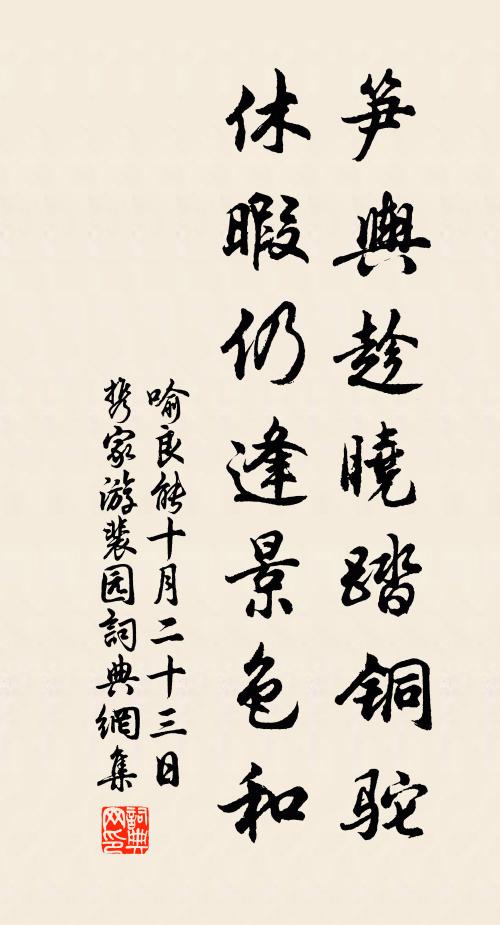 笋輿趁曉踏銅駝
休暇仍逢景色和
喻良能十月二十三日
携家游裴园詞典網集
詞典
网印